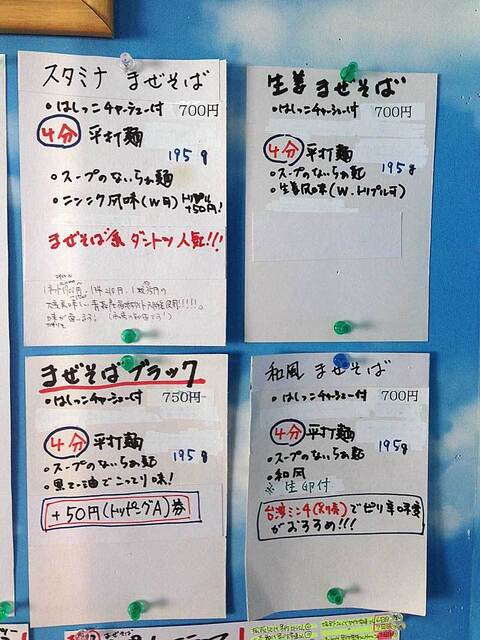 スタミナ まぜそば
・はしっこチャーシュー付 700円
4分 平打麺
195g
・スープのないらぁ麺
・ニンニク風味(W可)トリプル+50円!
まぜそば系 ダントツ人気!!!
生姜まぜそば
・はしっこチャーシュー付 700円
4分 平打麺
195g
・スープのないらぁ麺
・生姜風味(W・トリプル可)
まぜそばブラック
・はしっこチャーシュー付 750円
4分 平打麺
195g
・スープのないらぁ麺
・黒マー油でこってり味!
+50円(トッピングA)券
和風 まぜそば
・はしっこチャーシュー付 700円
4分 平打麺
195g
・スープのないらぁ麺
・和風
※ 生卵付
台湾ミンチ(別売)でピリ辛味変
がおすすめ!!!